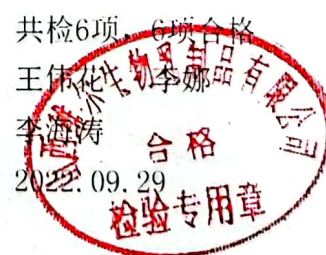 共检6项，6项合格
王伟花 李娜
李海涛
2022.09.29
生物
品有限公司
合格
检验专用章